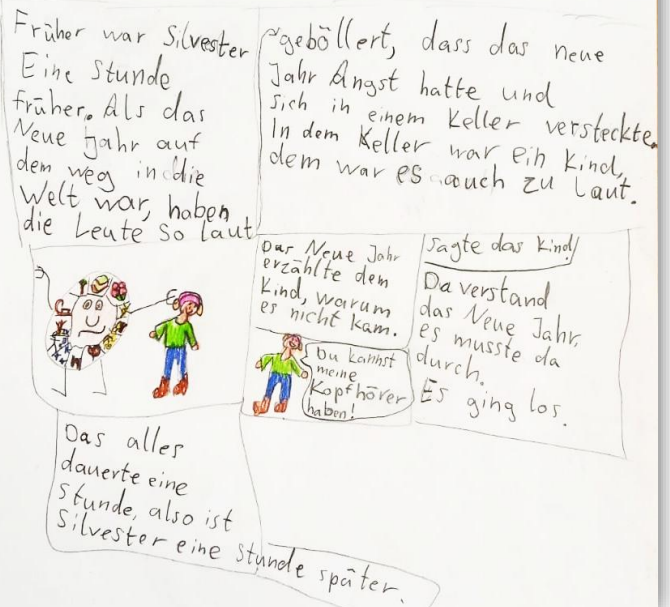 Früher war Silvester
Eine Stunde
früher. Als das
Neue Jahr auf
dem weg in die
Welt war, haben
die Leute so laut
geböllert, dass das neue
Jahr Angst hatte und
sich in einem Keller versteckte.
In dem Keller war ein Kind,
dem war es auch zu laut.
Das Neue Jahr
erzählte dem
Kind, warum
es nicht kam.
Du kannst
meine
Kopfhörer
haben!
sagte das Kind!
Da verstand
das Neue Jahr,
es musste da
durch.
Es ging los.
Das alles
dauerte eine
Stunde, also ist
Silvester eine Stunde später.